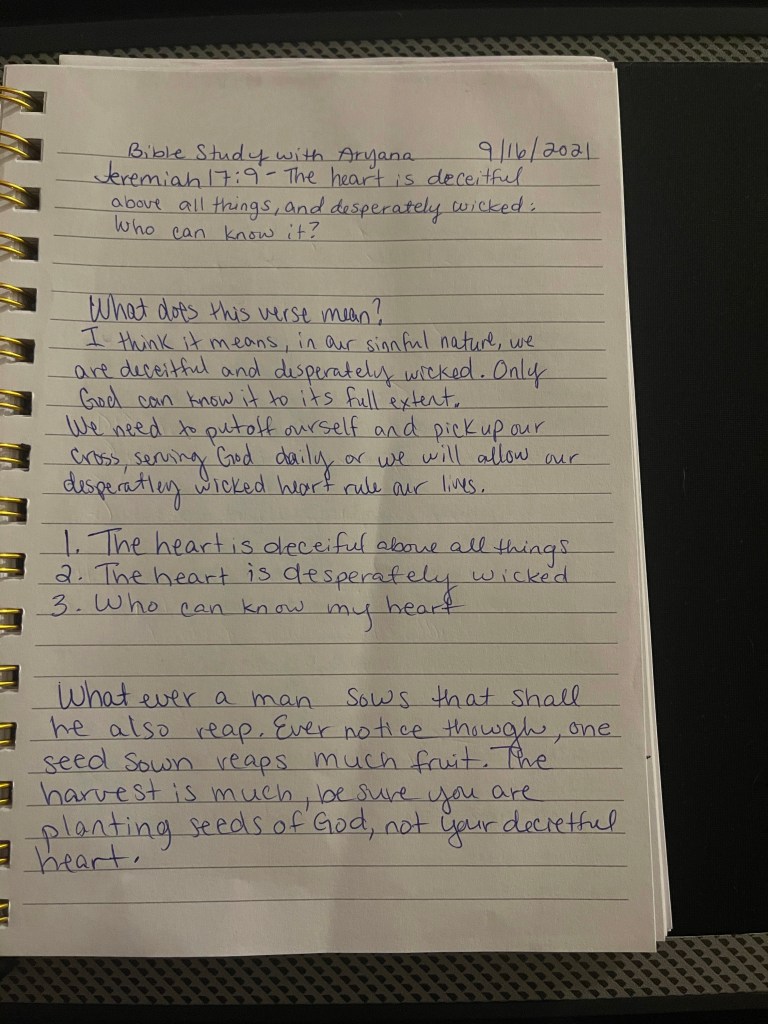 Bible Study with Aryana 9/16/2021
Jeremiah 17:9 - The heart is deceitful
above all things, and desperately wicked:
Who can know it?
What does this verse mean?
I think it means, in our sinnful nature, we
are deceitful and desperately wicked. Only
God can know it to its full extent.
We need to putoff ourself and pick up our
cross, serving God daily or we will allow our
desperatley wicked heart rule our lives.
1. The heart is deceiful above all things
2. The heart is desperately wicked
3. Who can know my heart
What ever a man sows that shall
he also reap. Ever notice though, one
seed sown reaps much fruit. The
harvest is much, be sure you are
planting seeds of God, not your decretful
heart.